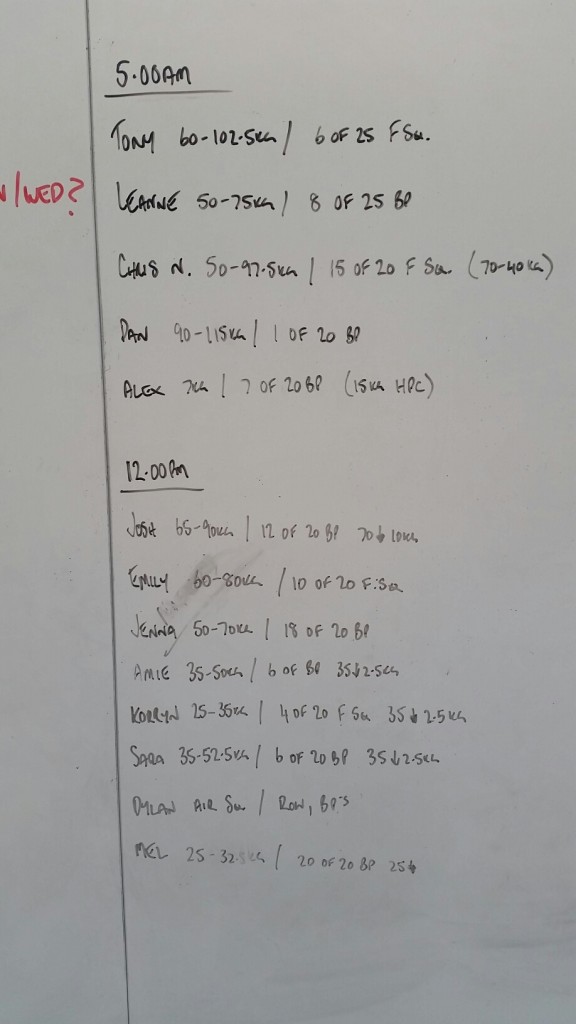 5.00AM
TONY 60-102.5KG / 6 OF 25 F SQ.
/WED?
LEANNE 50-75KG / 8 OF 25 BP
CHRIS N. 50-97.5KG / 15 OF 20 F SQ. (70-40KG)
DAN 90-115KG / 1 OF 20 BP
ALEX 7KG / 7 OF 20 BP (15KG HPC)
12.00PM
JOSH 65-90KG / 12 OF 20 BP 70↓10KG
EMILY 60-80KG / 10 OF 20 F.SQ
JENNA 50-70KG / 18 OF 20 BP
AMIE 35-50KG / 6 OF BP 35↓2.5KG
KORRYN 25-35KG / 4 OF 20 F SQ 35↓2.5KG
SARA 35-52.5KG / 6 OF 20 BP 35↓2.5KG
DYLAN AIR SQ / ROW, BP'S
MEL 25-32.5KG / 20 OF 20 BP 25↓